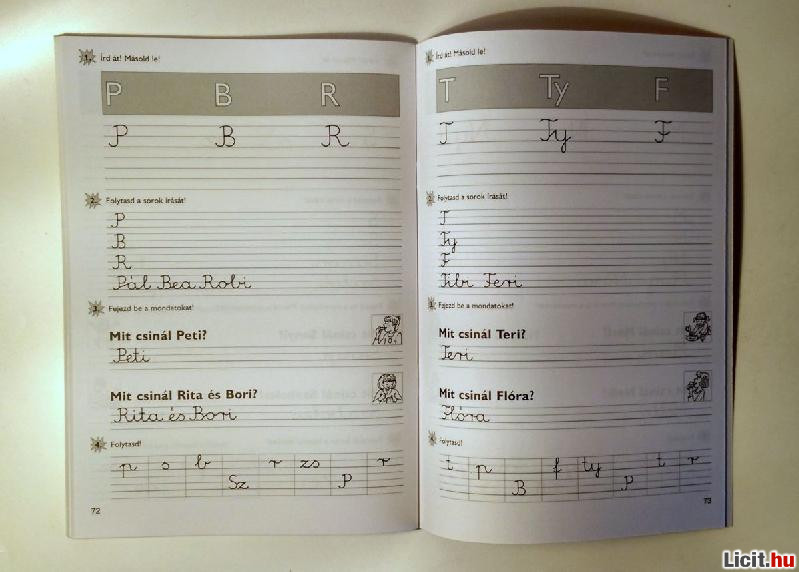 1. Írd át! Másold le!
P B R
P B R
2. Folytasd a sorok írását!
P
B
R
Pál Bea Robi
3. Fejezd be a mondatokat!
Mit csinál Peti?
Peti
Mit csinál Rita és Bori?
Rita és Bori
4. Folytasd!
p s b r zs r
Sz P
72
1. Írd át! Másold le!
T Ty F
T Ty F
2. Folytasd a sorok írását!
T
Ty
F
Tibi Feri
3. Fejezd be a mondatokat!
Mit csinál Teri?
Teri
Mit csinál Flóra?
Flóra
4. Folytasd!
t p f ty t r
B P
73
Licit.hu